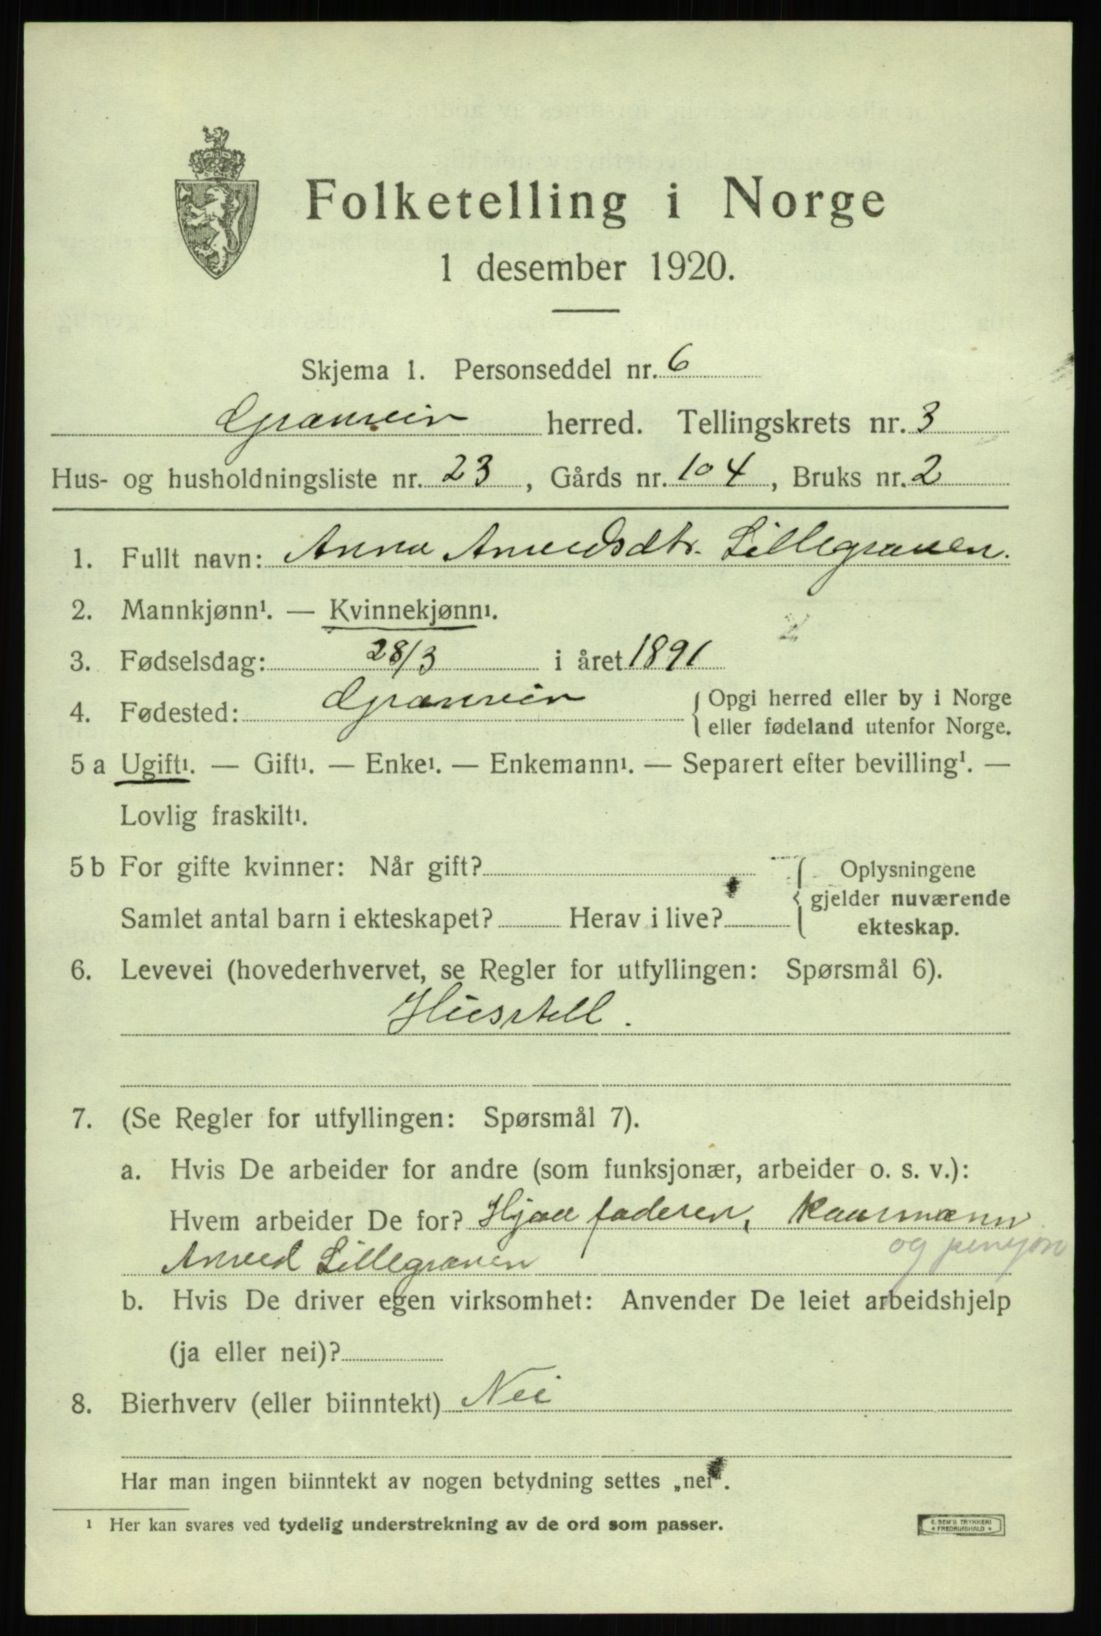 Folketelling i Norge
1 desember 1920.
Skjema 1. Personseddel nr. 6
Granvin herred. Tellingskrets nr. 3
Hus- og husholdningsliste nr. 23, Gårds nr. 104, Bruks nr. 2
1. Fullt navn: Anna Anvedsdtr. Lillegraven.
2. Mannkjønn¹. — Kvinnekjønn¹.
3. Fødselsdag: 28/3 i året 1891
4. Fødested: Granvin { Opgi herred eller by i Norge
eller fødeland utenfor Norge.
5 a Ugift¹. — Gift¹. — Enke¹. — Enkemann¹. — Separert efter bevilling¹. —
Lovlig fraskilt¹.
5 b For gifte kvinner: Når gift? { Oplysningene
gjelder nuværende
Samlet antal barn i ekteskapet? Herav i live? ekteskap.
6. Levevei (hovederhvervet, se Regler for utfyllingen: Spørsmål 6).
Husstell.
7. (Se Regler for utfyllingen: Spørsmål 7).
a. Hvis De arbeider for andre (som funksjonær, arbeider o. s. v.):
Hvem arbeider De for? Hjaa faderen,
Anved Lillegraven
b. Hvis De driver egen virksomhet: Anvender De leiet arbeidshjelp
(ja eller nei)?
8. Bierhverv (eller biinntekt) Nei
Har man ingen biinntekt av nogen betydning settes „nei".
¹ Her kan svares ved tydelig understrekning av de ord som passer.